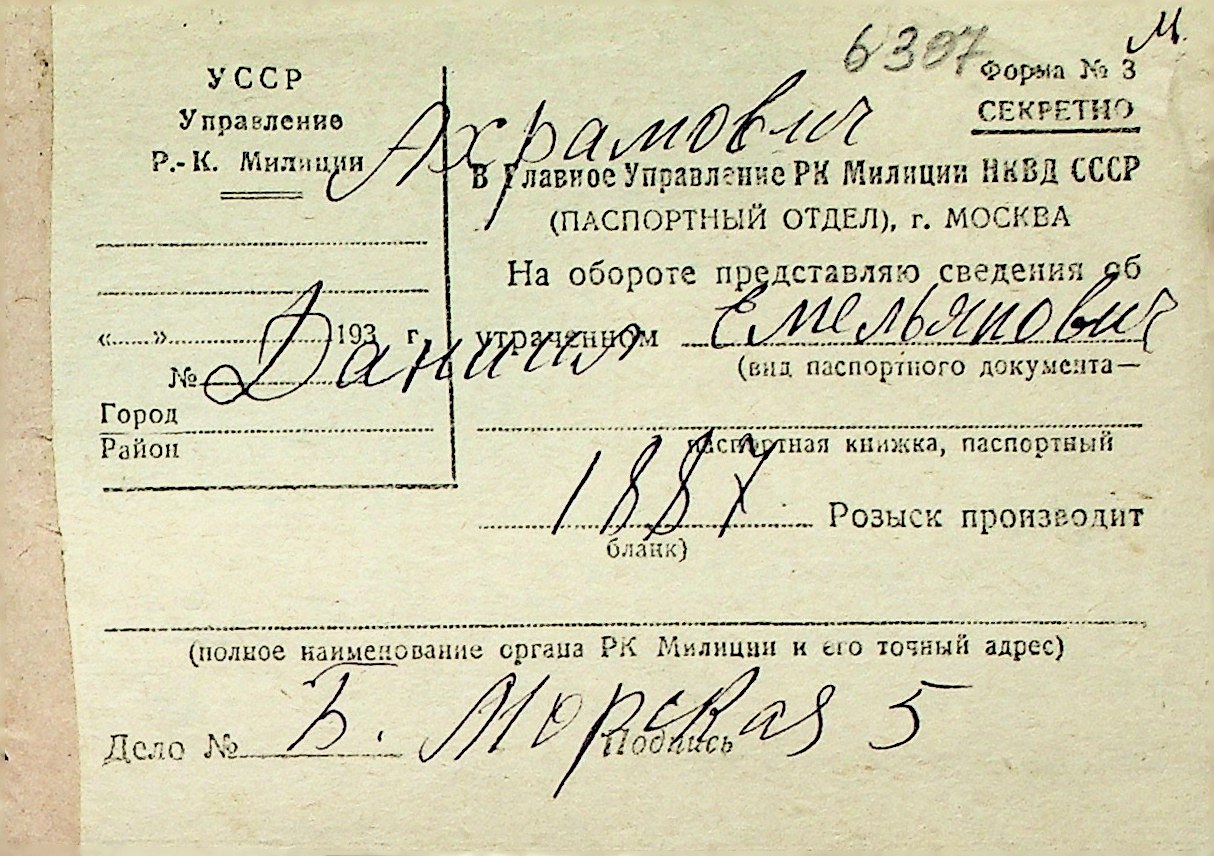 6307
М.
УССР
Управление
Р.-К. Милиции
«.....»..................193 г.
№
Город
Район
Форма № 3
СЕКРЕТНО
Ахрамович
В Главное Управление РК Милиции НКВД СССР
(ПАСПОРТНЫЙ ОТДЕЛ), г. МОСКВА
На обороте представляю сведения об
утраченном
Даниил Емельянович
(вид паспортного документа—
паспортная книжка, паспортный
1887
Розыск производит
бланк)
(полное наименование органа РК Милиции и его точный адрес)
Б. Морская 5
Дело № Подпись